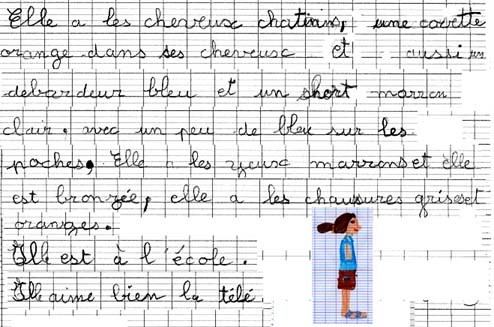 Elle a les cheveux chatains, une couette
orange dans ses cheveux et aussi un
debardeur bleu et un short marron
clair. avec un peu de bleu sur les
poches, Elle a les yeux marrons et elle
est bronzée, elle a les chausures grises et
oranges.
Elle est à l'école.
Elle aime bien la télé.